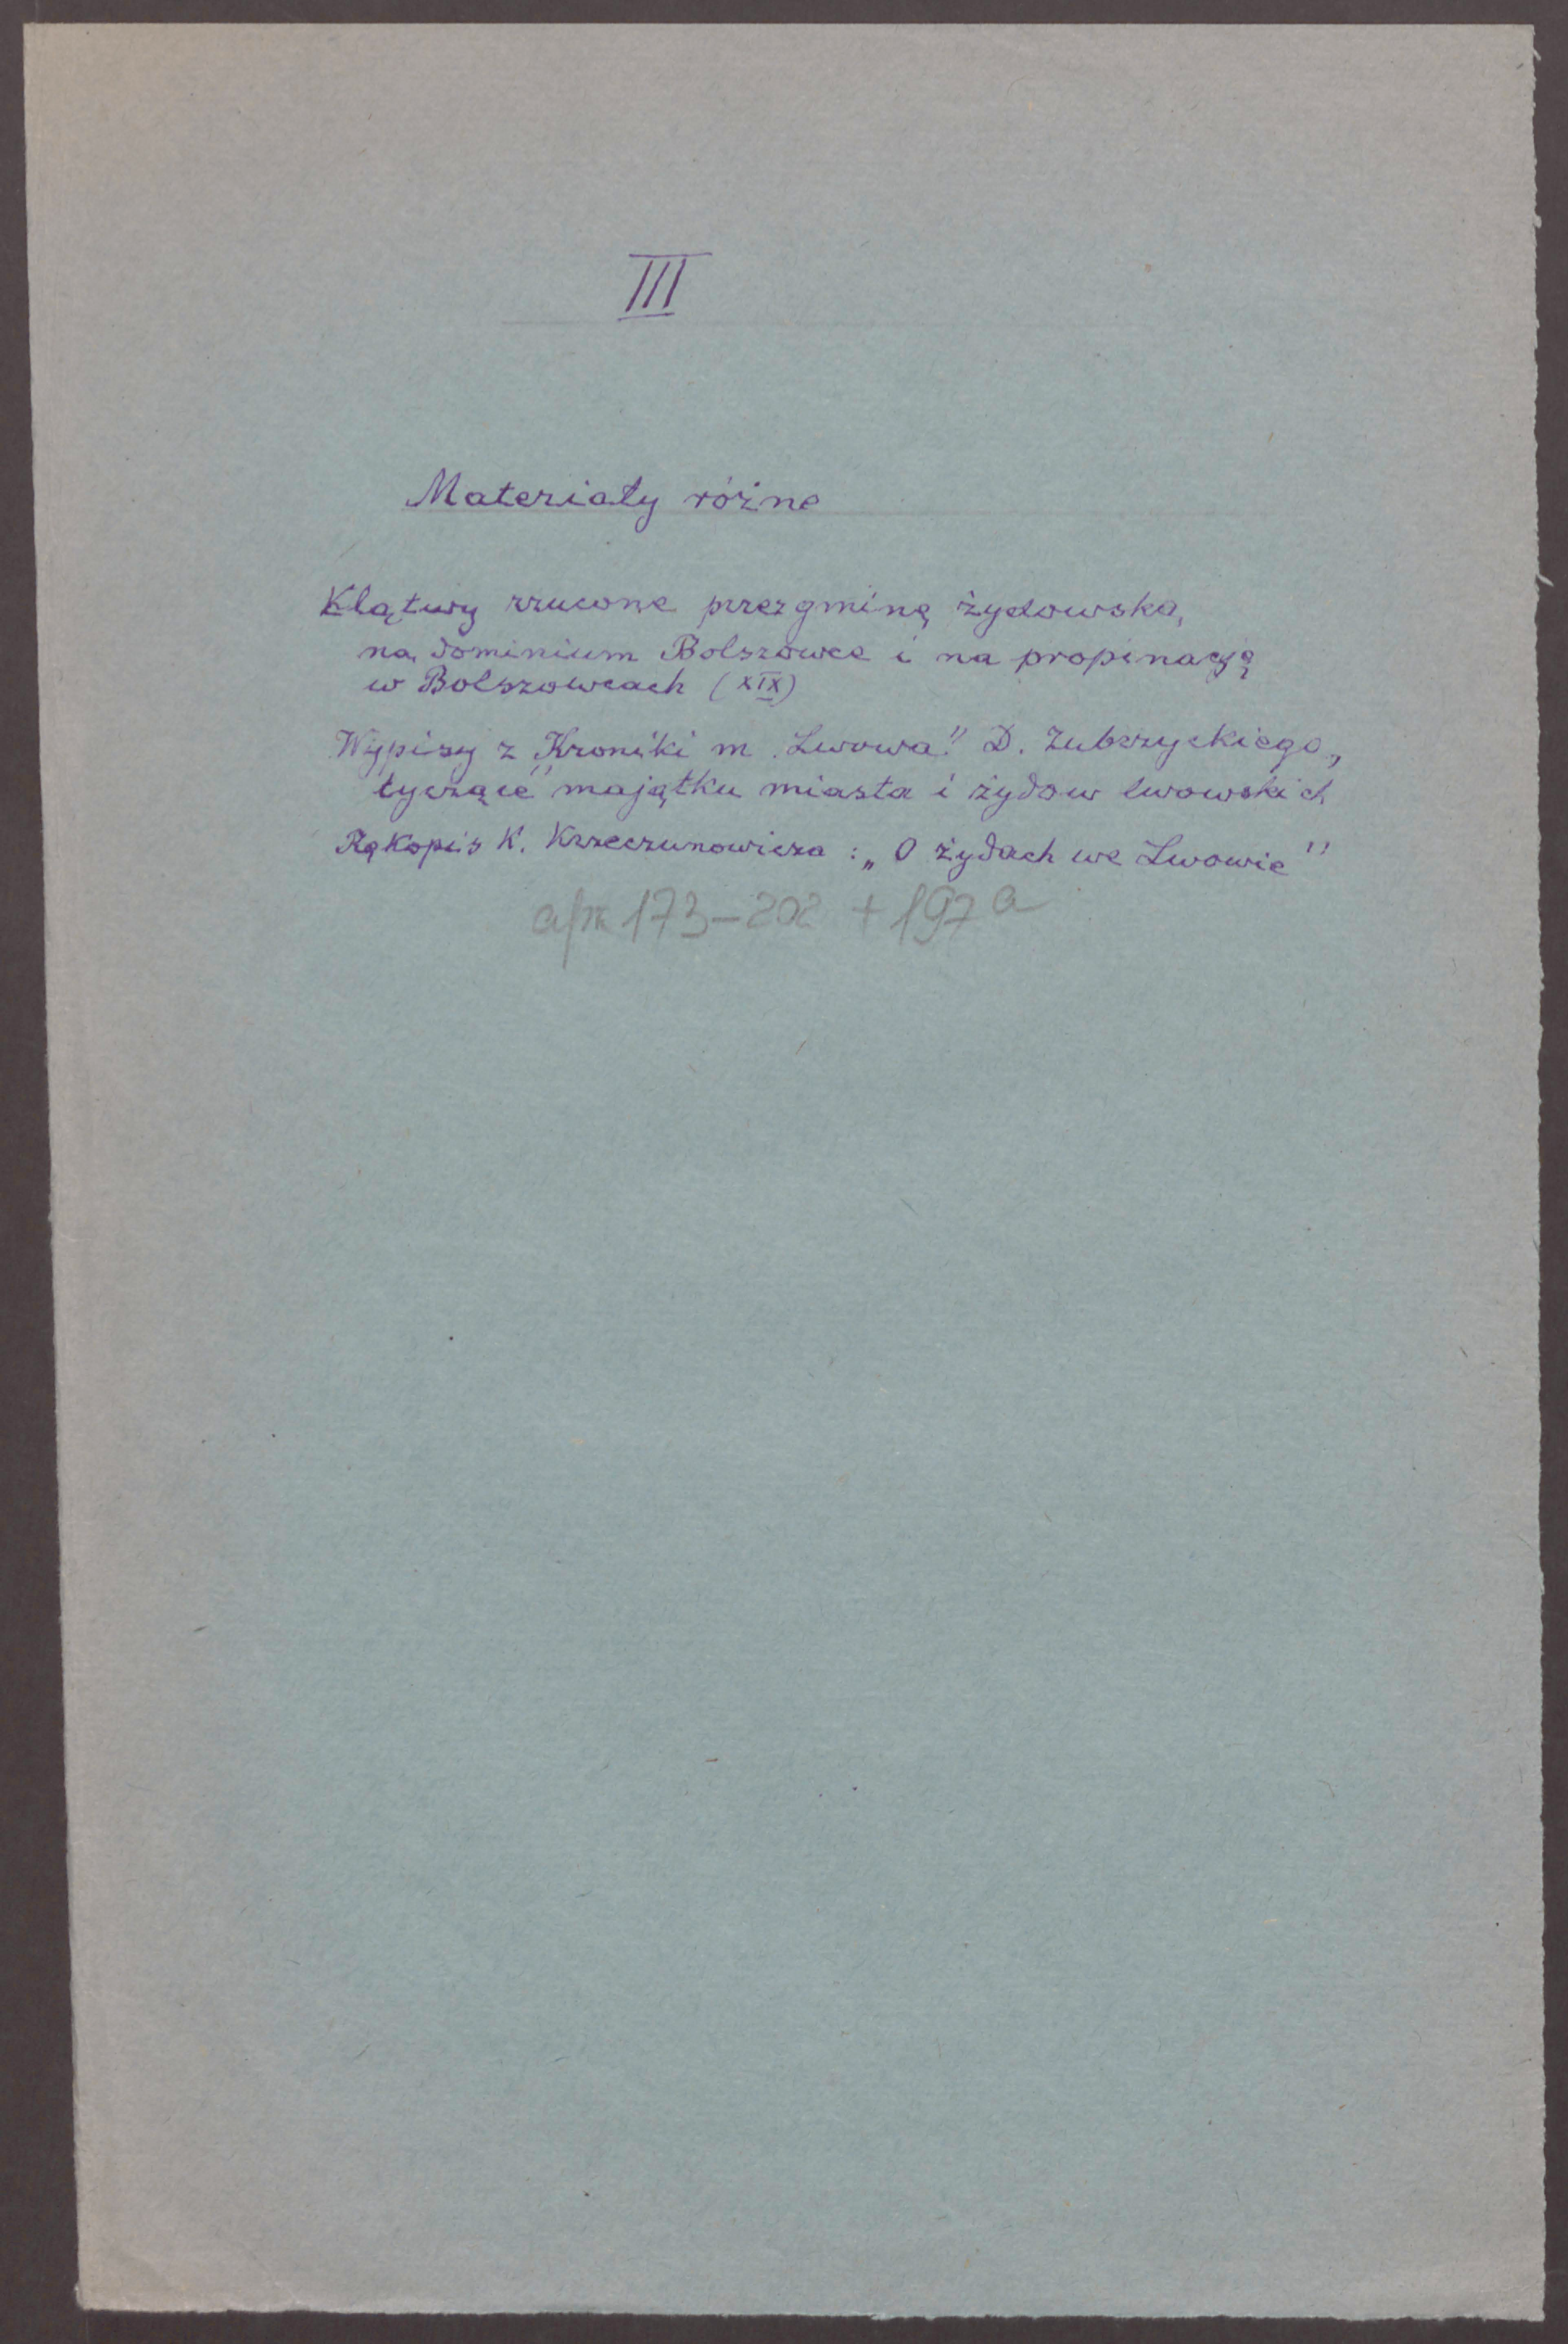 III
Materiały różne
Klątwy rzucone przez gminę żydowską
na dominium Bolszowce i na propinację
w Bolszowcach (XIX)
Wypisy z "Kroniki m. Lwowa" D. Zubrzyckiego,
tyczące majątku miasta i żydów lwowskich
Rękopis K. Krzeczunowicza: „O żydach we Lwowie"
173-202 + 197a